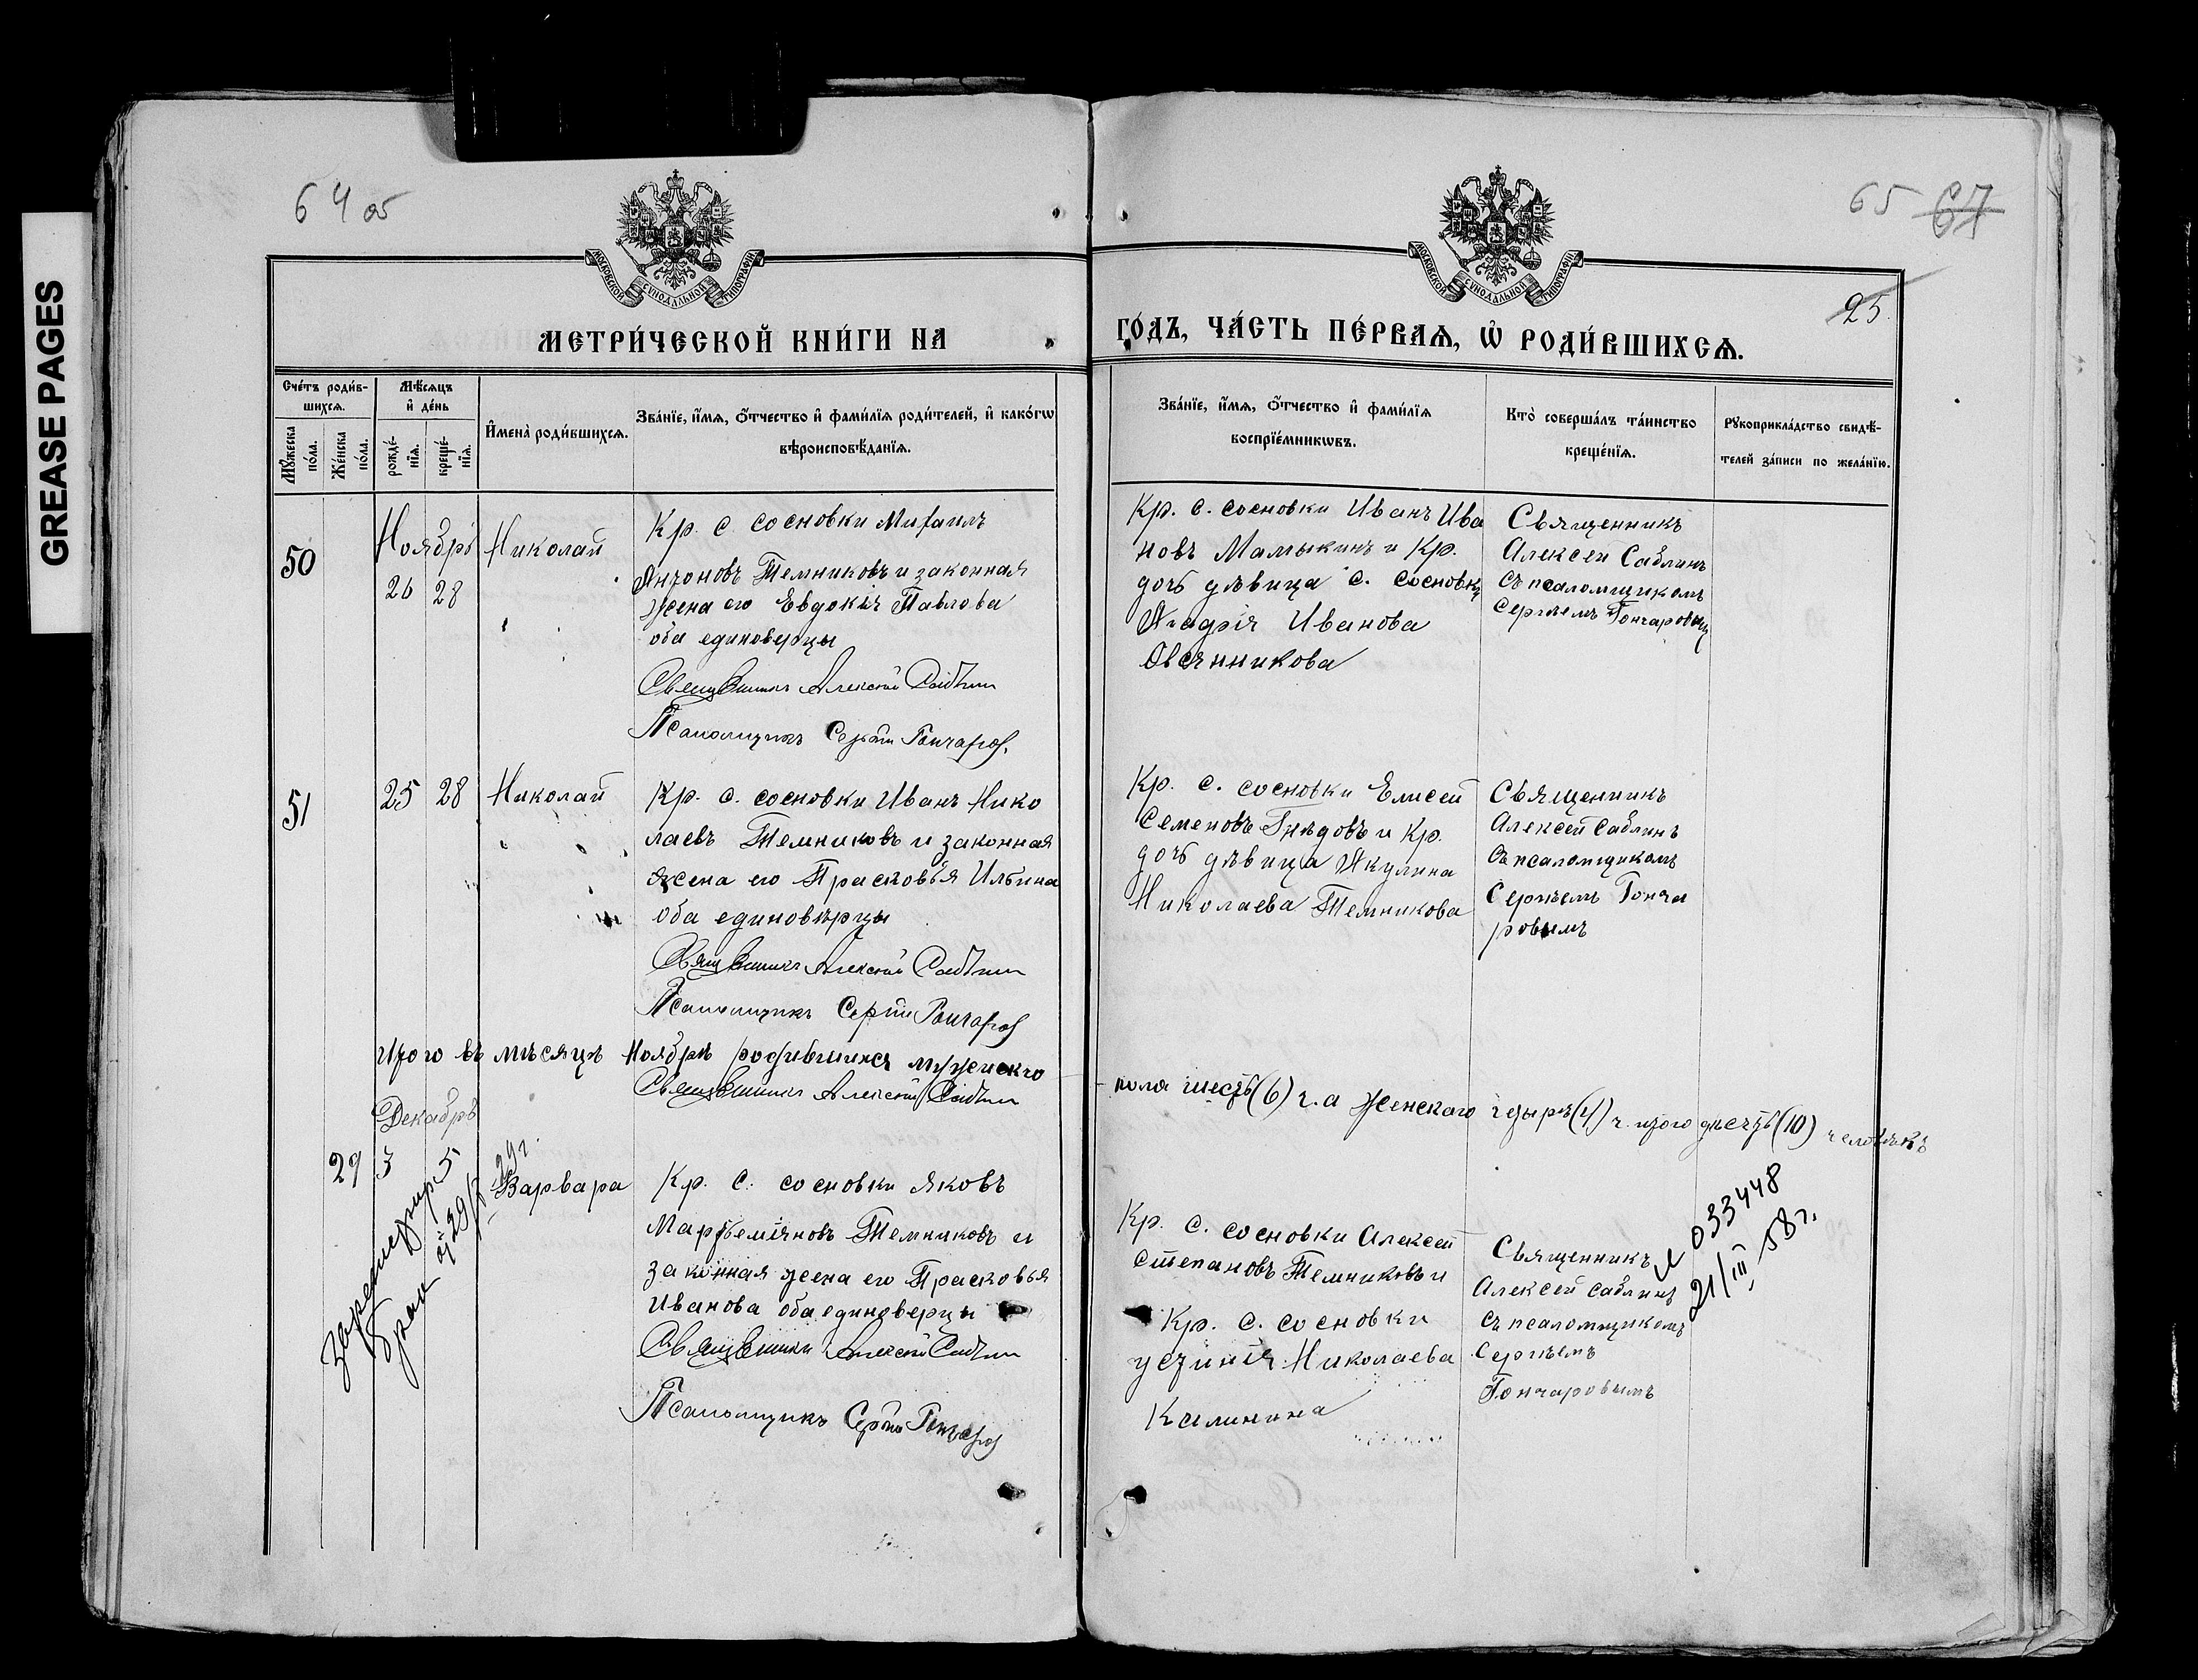 GREASE PAGES
64 об
65 67
25
МОСКОВСКОЙ СѴНОДАЛЬНОЙ ТИПОГРАФІИ
МОСКОВСКОЙ СѴНОДАЛЬНОЙ ТИПОГРАФІИ
МЕТРИ́ЧЕСКОЙ КНИ́ГИ НА
ГО́ДЪ, ЧА́СТЬ ПЕ́РВАѦ, Ѡ҆ РОДИ́ВШИХСѦ.
Сче́тъ роди́в-
шихсѧ.
Мꙋ́жеска
по́ла.
Же́нска
по́ла.
Мѣ́сѧцъ
и҆ де́нь
рожде́-
нїѧ.
креще́-
нїѧ.
И҆мена̀ роди́вшихсѧ.
Зва́нїе, и҆́мѧ, ѻ҆́тчество и҆ фами́лїѧ роди́телей, и҆ како́гѡ
вѣроисповѣ́данїѧ.
Зва́нїе, и҆́мѧ, ѻ҆́тчество и҆ фами́лїѧ
воспрїе́мникѡвъ.
Кто̀ соверша́лъ та́инство
креще́нїѧ.
Рꙋкоприкла́дство свидѣ́-
телей за́писи по жела́нїю.
50
Ноябрь
26 28
Николай
Кр. с. сосновки Михаилъ
Антоновъ Темниковъ и законная
жена его Евдокія Павлова
оба единоверцы
Священникъ Алексій Саблин
Псаломщикъ Сергій Гончаров.
Кр. с. сосновки Иванъ Ива
новъ Мамыкинъ и Кр.
дочь дѣвица с. сосновки
Агафія Иванова
Овсянникова
Священникъ
Алексей Саблинъ
съ псаломщикомъ
Сергѣемъ Гончаровым
51
25 28
Николай
Кр. с. сосновки Иванъ Нико
лаевъ Темниковъ и законная
жена его Прасковья Ильина
оба единовѣрцы
Священникъ Алексій Саблин
Псаломщикъ Сергій Гончаров
Кр. с. сосновки Елисей
Семеновъ Гнѣдовъ и Кр.
дочь дѣвица Акулина
Николаева Темникова
Священникъ
Алексей Саблинъ
съ псаломщикомъ
Сергѣемъ Гонча
ровымъ
Итого въ мѣсяцѣ Ноябрѣ родившихся мужскаго
пола шесть (6) ч. а женскаго четыре (4) ч. итого десять (10) человѣкъ
Священникъ Алексій Саблин
Декабрь
29
3 5
Варвара
Кр. с. сосновки Яковъ
Марфемьяновъ Темниковъ и
законная жена его Прасковья
Иванова оба единоверцы
Священникъ Алексій Саблин
Псаломщикъ Сергій Гончаров
Кр. с. сосновки Алексей
Степановъ Темниковъ и
Кр. с. сосновки
устинія Николаева
Калинина
Священникъ
Алексей Саблинъ
съ псаломщикомъ
Сергѣемъ
Гончаровымъ
брак
29 г.
033448
21/III 58 г.